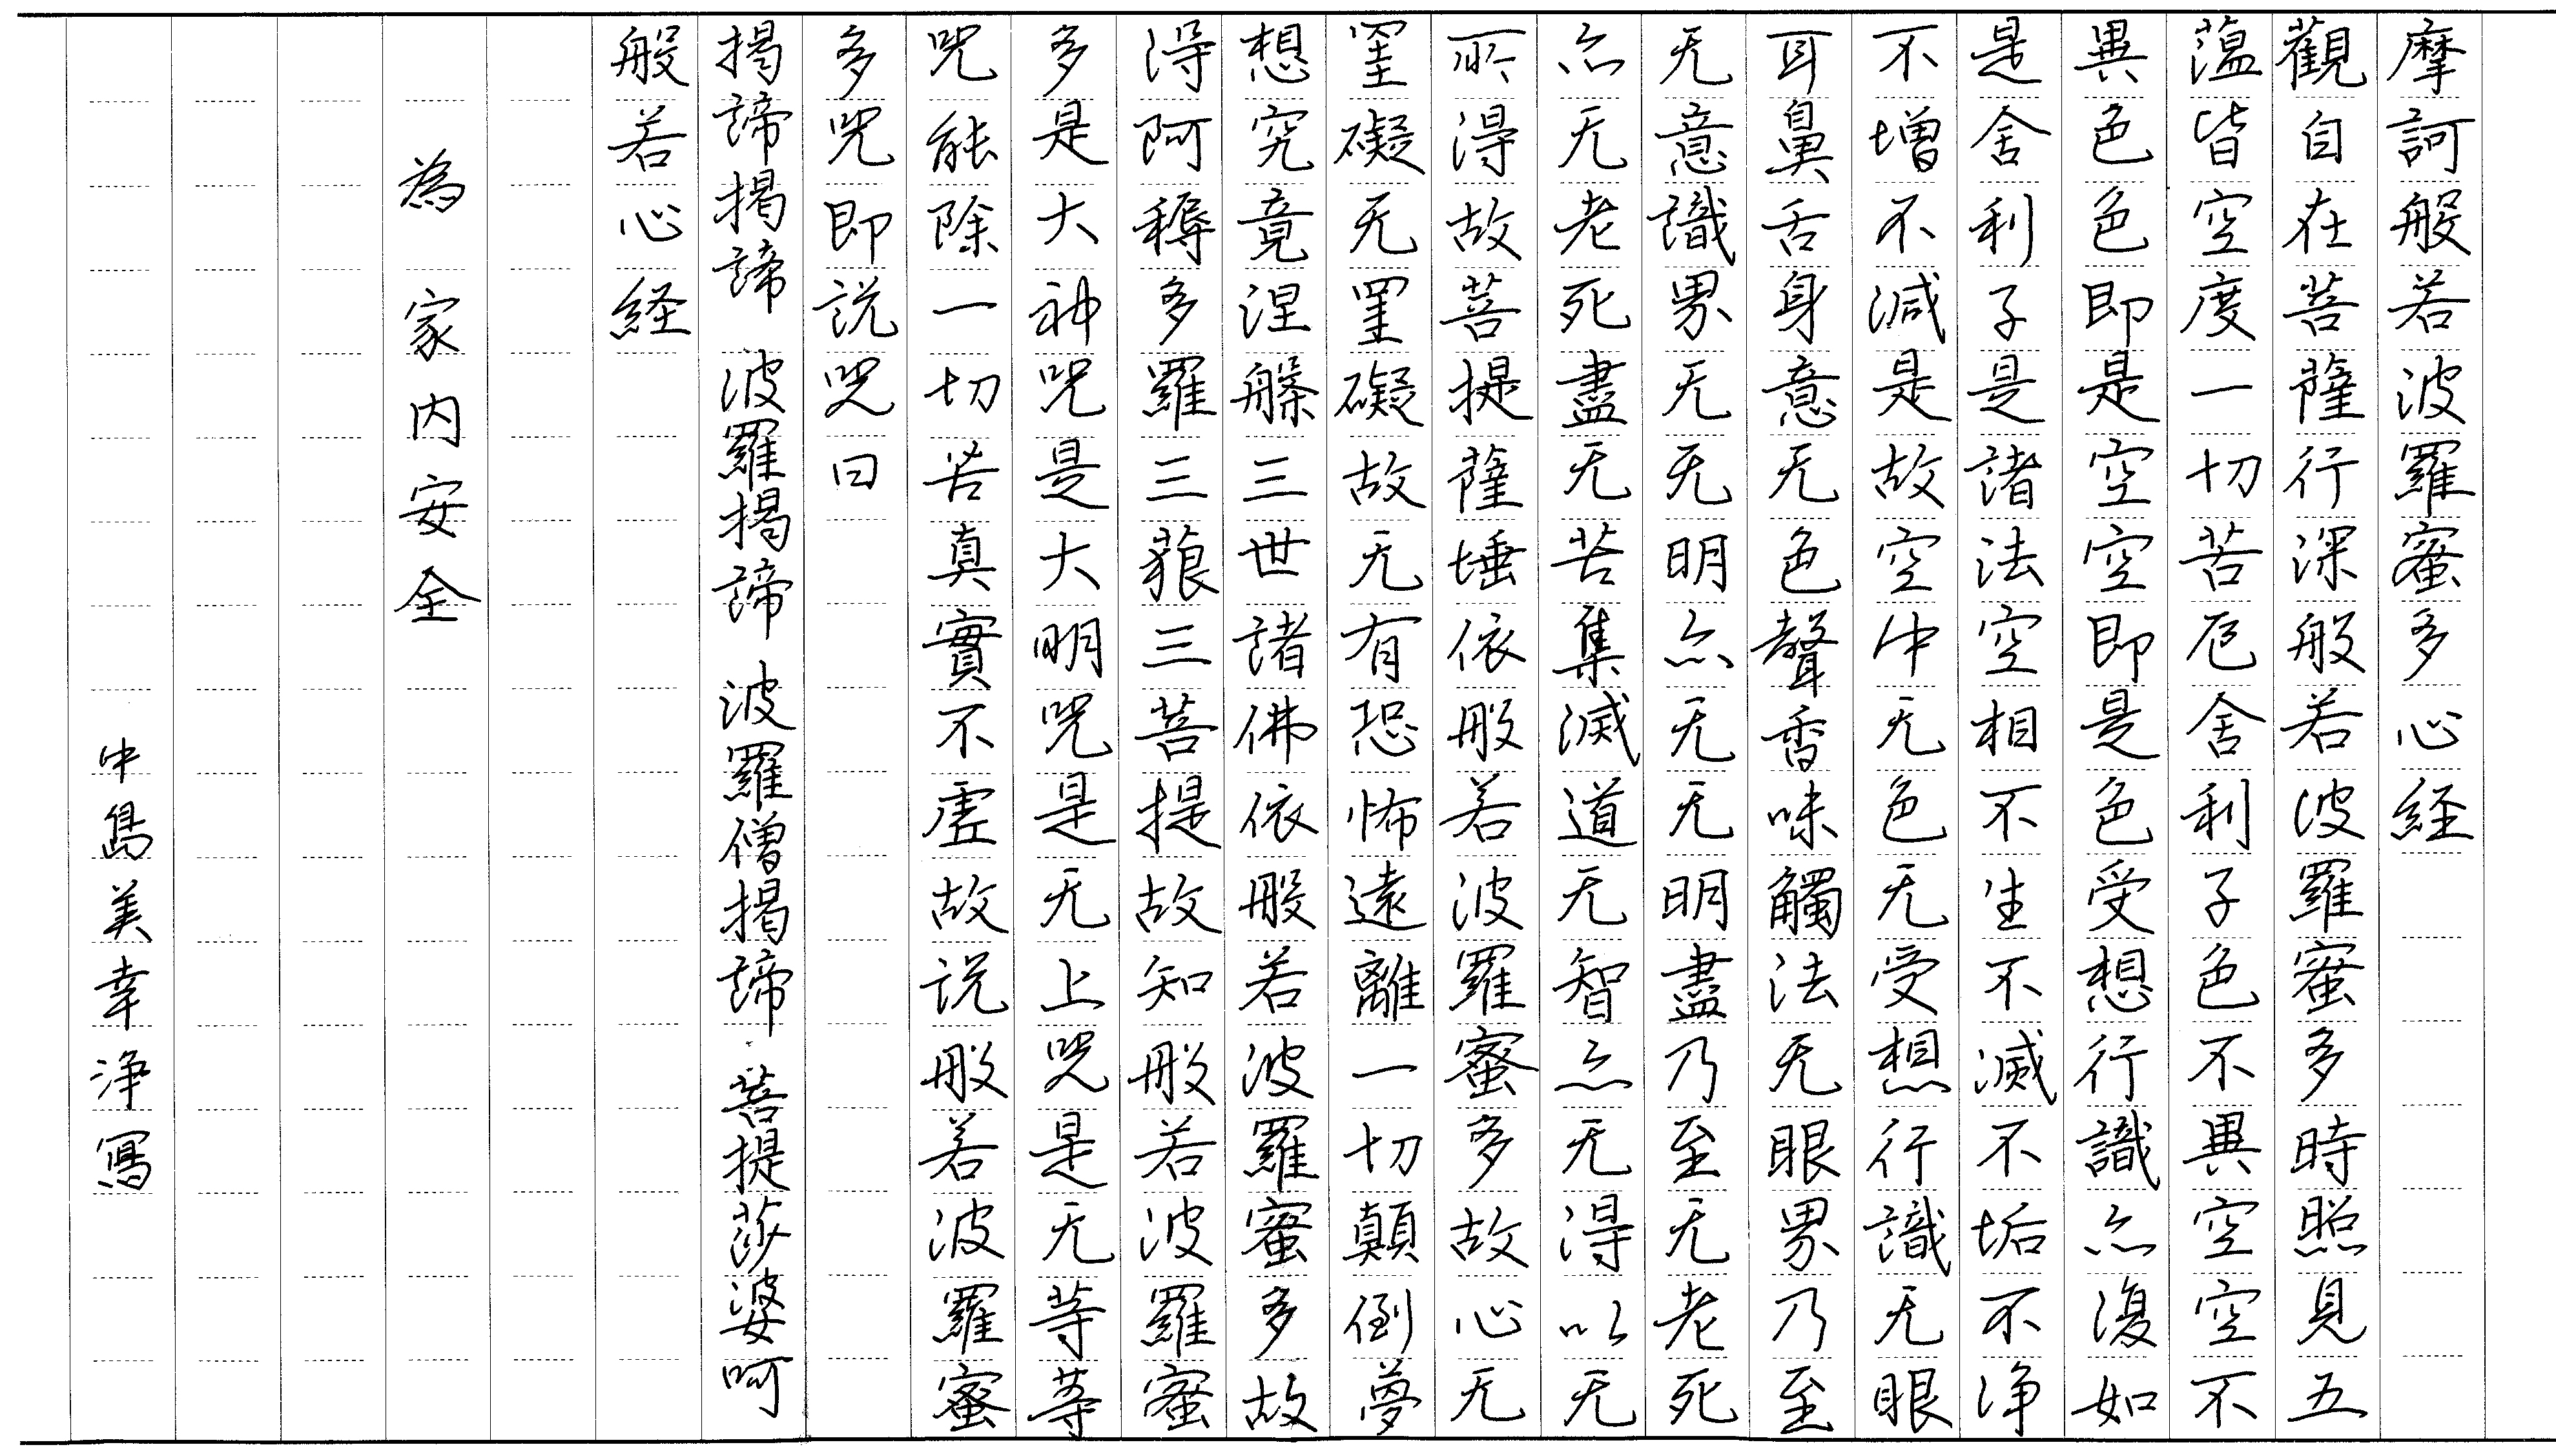 摩訶般若波羅蜜多心経
觀自在菩薩行深般若波羅蜜多時照見五
薀皆空度一切苦厄舍利子色不異空空不
異色色即是空空即是色受想行識亦復如
是舍利子是諸法空相不生不滅不垢不浄
不增不減是故空中无色无受想行識无眼
耳鼻舌身意无色聲香味觸法无眼界乃至
无意識界无无明亦无无明盡乃至无老死
亦无老死盡无苦集滅道无智亦无得以无
所得故菩提薩埵依般若波羅蜜多故心无
罣礙无罣礙故无有恐怖遠離一切顛倒夢
想究竟涅槃三世諸佛依般若波羅蜜多故
得阿耨多羅三藐三菩提故知般若波羅蜜
多是大神咒是大明咒是无上咒是无等等
咒能除一切苦真實不虛故説般若波羅蜜
多咒即説咒曰
揭諦揭諦 波羅揭諦 波羅僧揭諦 菩提莎婆呵
般若心経
為 家内安全
中島美幸浄寫